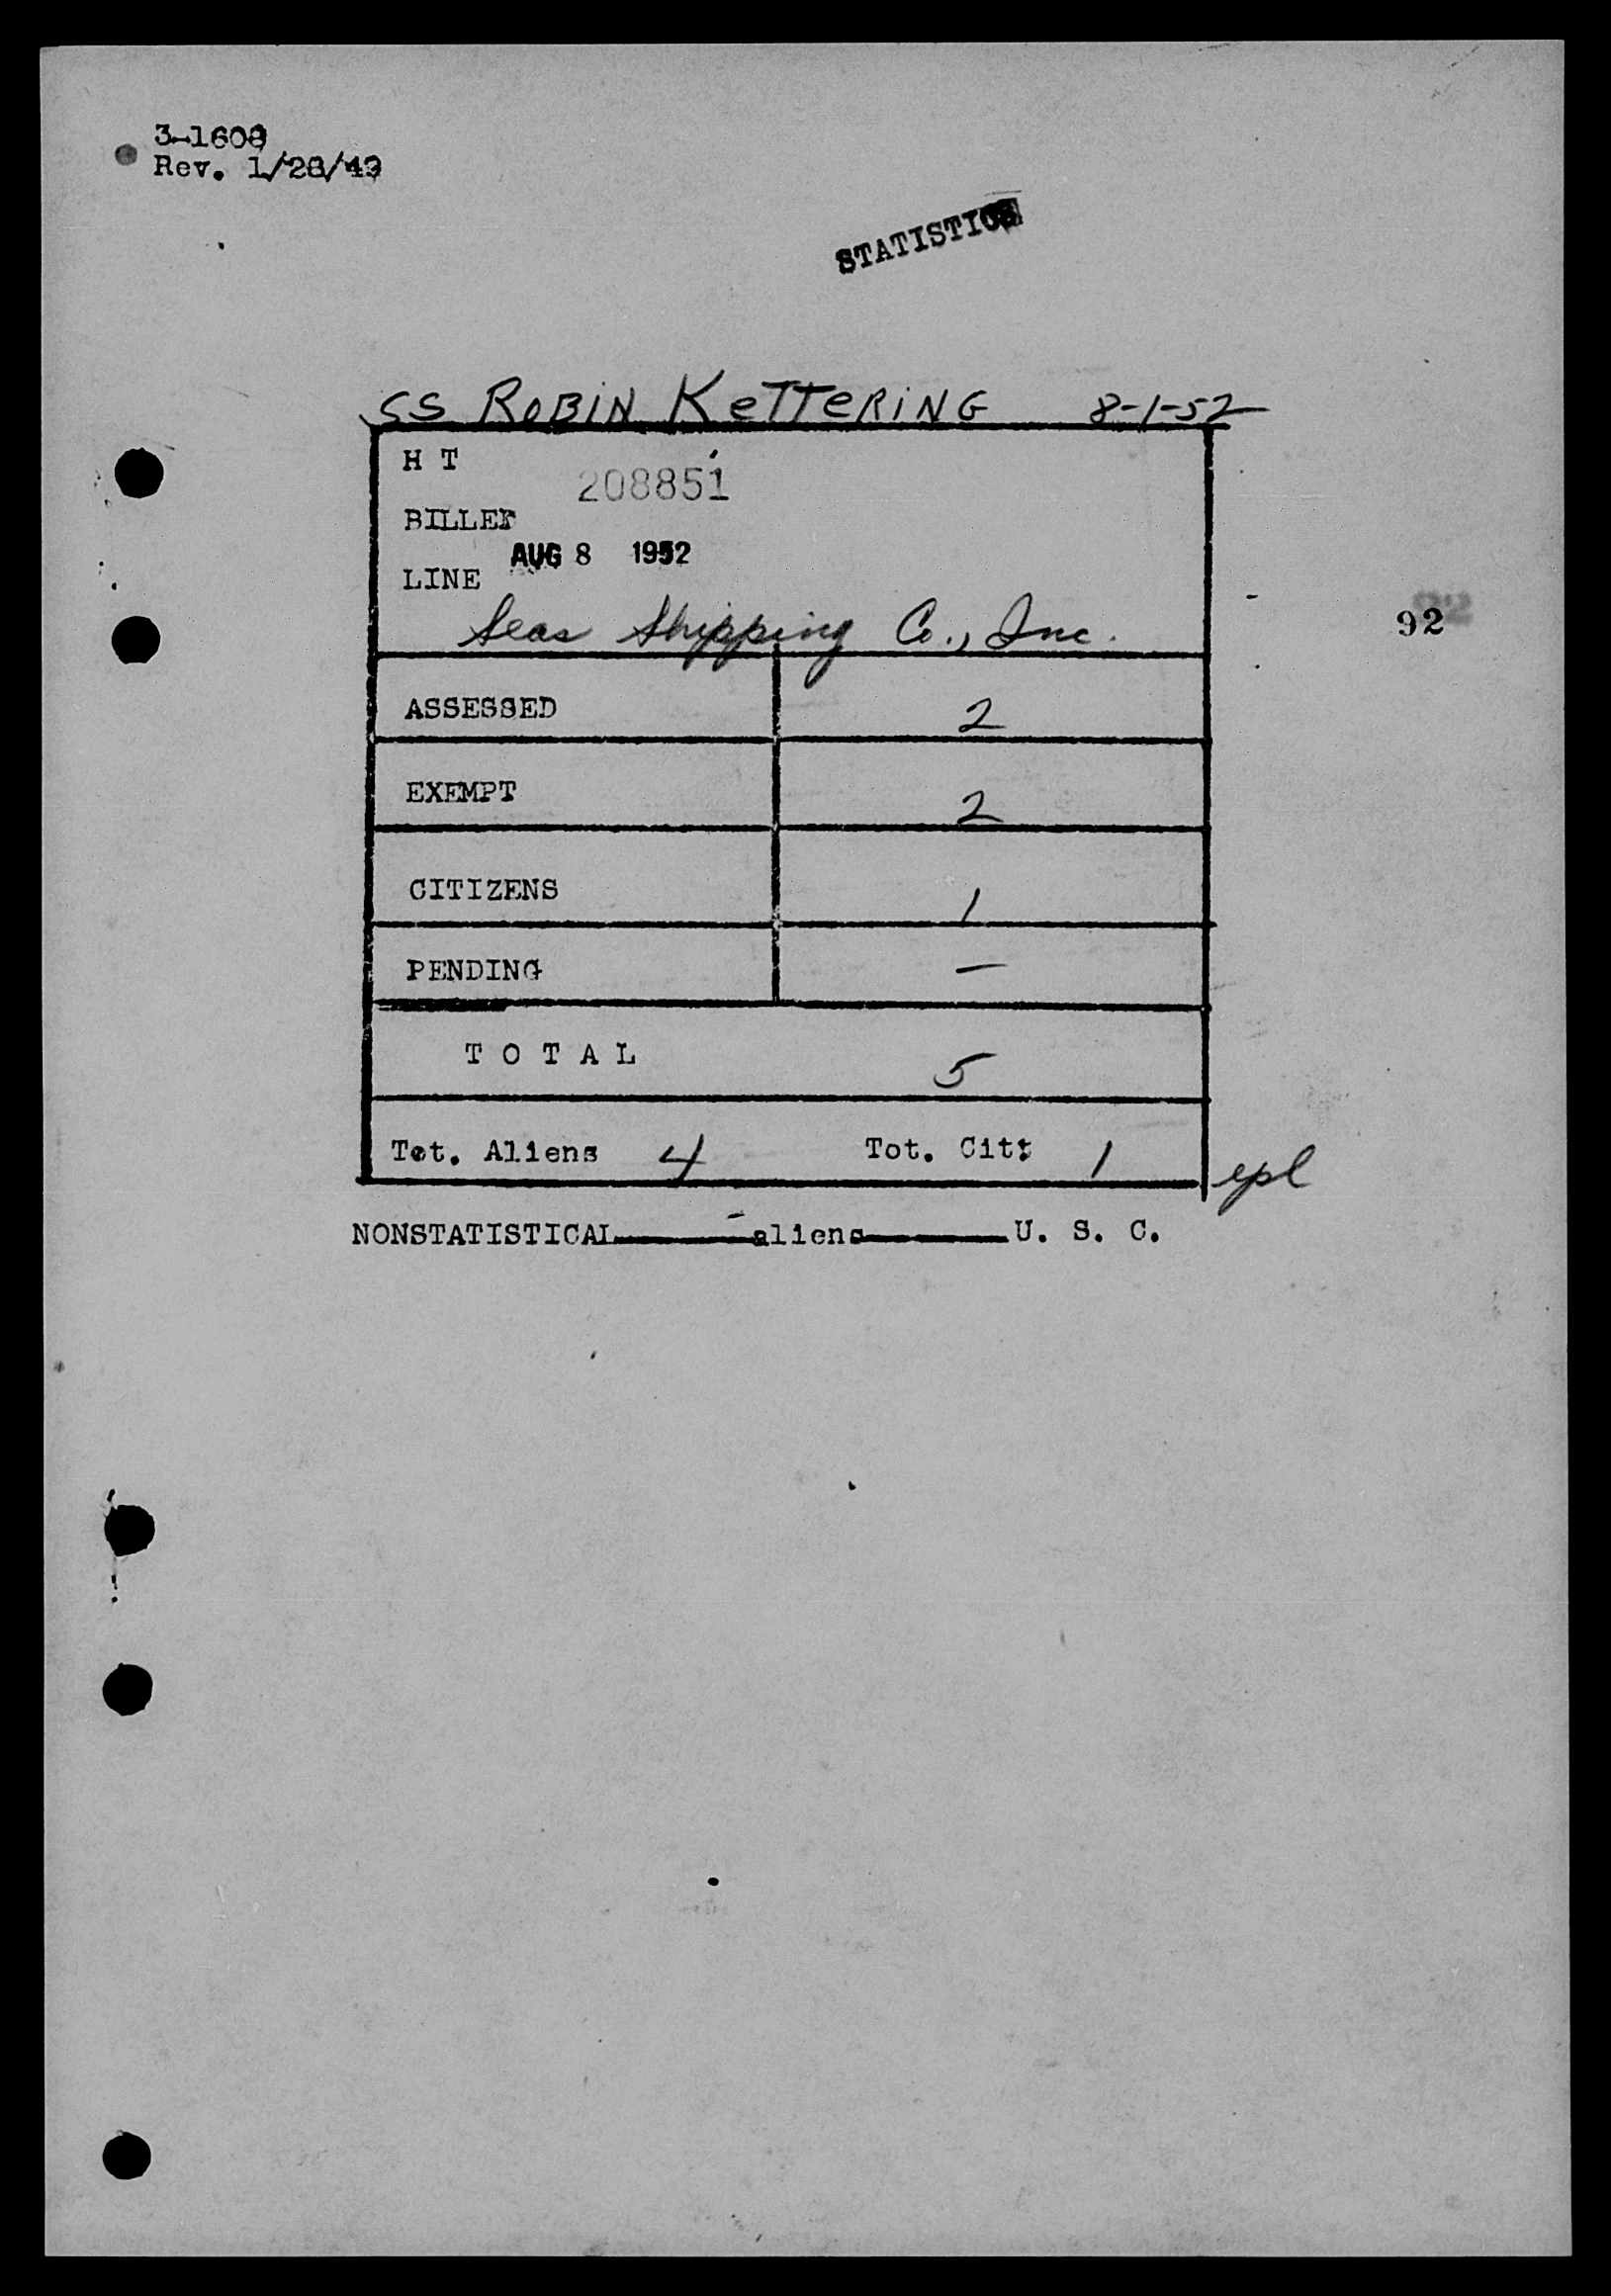 3-1608
Rev. 1/28/49
STATISTICS
SS ROBIN KETTERING 8-1-52
H T
208851
BILLET
AUG 8 1952
LINE
Seas Shipping Co., Inc.
92
ASSESSED 2
EXEMPT 2
CITIZENS 1
PENDING —
T O T A L 5
Tot. Aliens 4 Tot. Cit: 1 epl
NONSTATISTICAL______aliens______U. S. C.